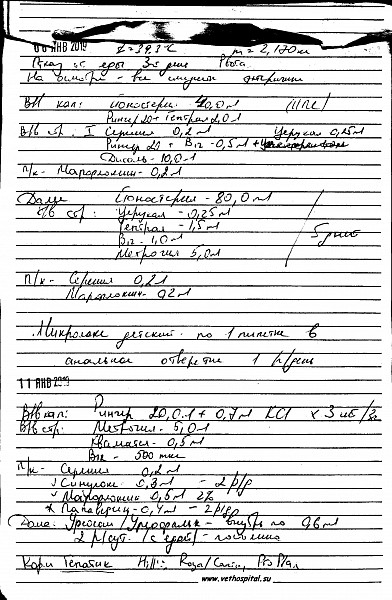 06 ЯНВ 2019 t=39,3°C m=2,120кг
Отказ от еды 3 дня Рвота
На осмотре - все слизистые
В/в кап: Йоностерил 40,0мл
Рингер 20 + Гептрал 2,0мл
В/в стр. I Серения 0,2мл Церукал 0,25мл
Рингер 20 + B12 - 0,5мл +
Дисоль - 10,0мл
п/к - Марфлоксин - 0,2мл
Далее Йоностерил - 80,0мл
в/в стр: Церукал - 0,25мл
Гептрал - 1,5мл
B12 - 1,0мл
Метрогил 5,0мл
5 дней
П/к - Серения 0,2мл
Марфлоксин - 0,2мл
Микролакс детский по 1 пипетке в
анальное отверстие 1 р/день
11 ЯНВ 2019
В/в кап: Рингер 20,0мл + 0,7мл KCl x 3
В/в стр: Метрогил - 5,0мл
Квамател - 0,5мл
B12 - 500 мкг
П/к - Серения 0,2мл
Синулокс 0,3мл - 2 р/д
Марфлоксин 0,6мл 2%
Папаверин - 0,4мл - 2 р/д
Дома: Урсосан / Урсофальк - внутрь по 0,6мл
2 р/сут. (с едой) -
Корм Гепатик Hill's, Royal Canin, Pro Plan
www.vethospital.su